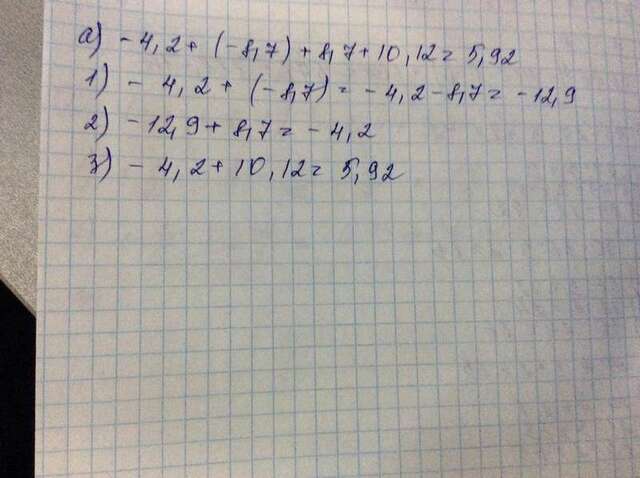 а) - 4,2 + (-8,7) + 8,7 + 10,12 = 5,92
1) - 4,2 + (-8,7) = - 4,2 - 8,7 = - 12,9
2) - 12,9 + 8,7 = - 4,2
3) - 4,2 + 10,12 = 5,92